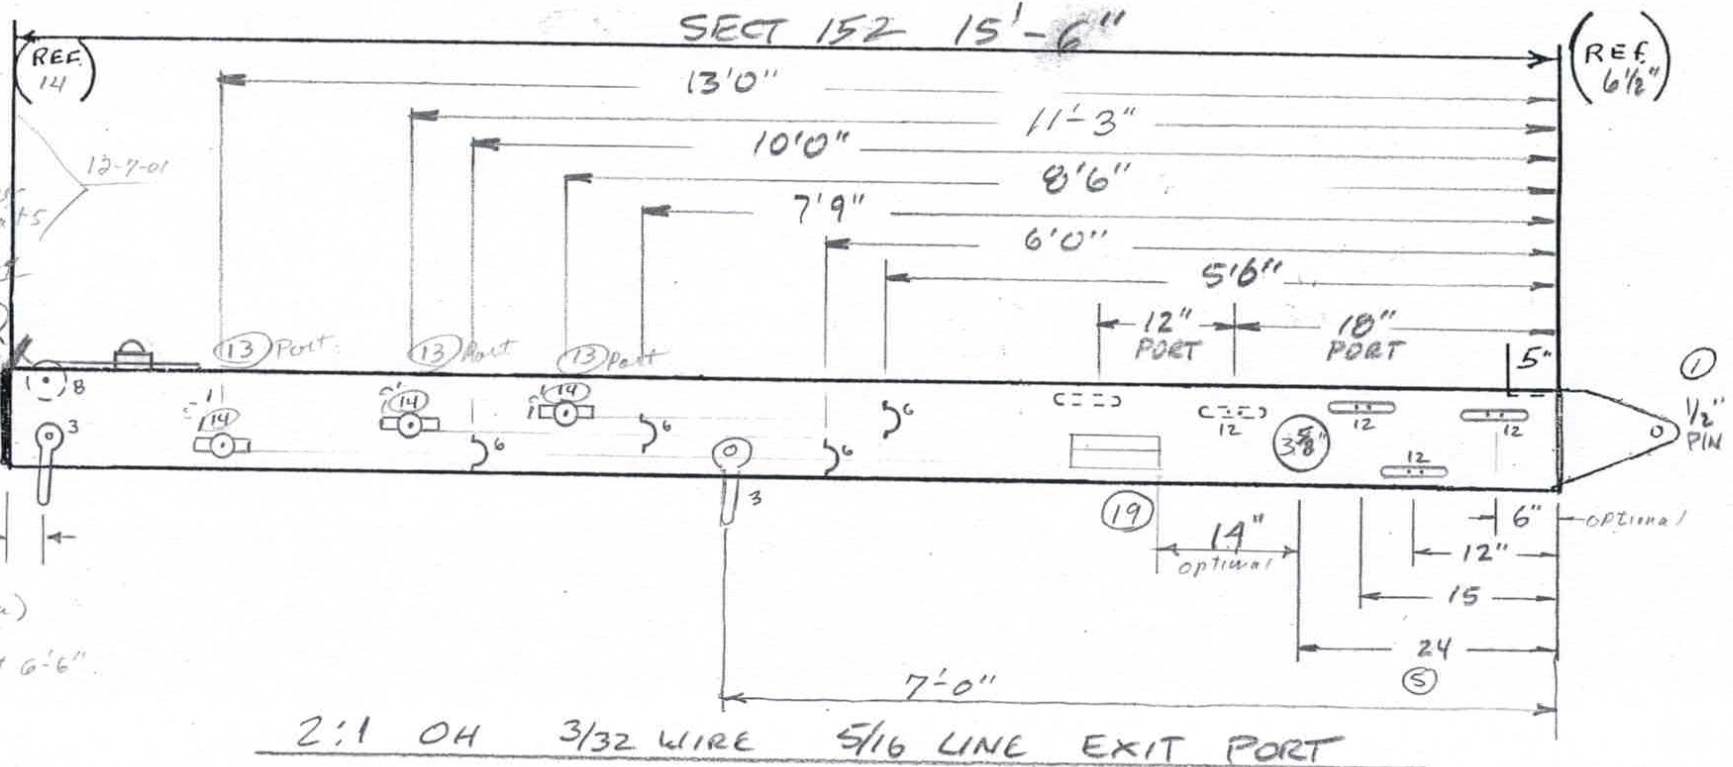 SECT 152 15'-6"
(REF. 14)
(REF. 6 1/2")
13'0"
11'-3"
10'0"
12-7-01
8'6"
7'9"
6'0"
5'6"
12" PORT
18" PORT
13 Port
13 Port
13 Port
5"
1
1/2" PIN
8
3
14
14
14
6
6
6
6
3
12
3 5/8"
12
12
12
19
14"
optional
6"
optional
12"
15
24
5
6'-6"
7'-0"
2:1 OH 3/32 WIRE 5/16 LINE EXIT PORT